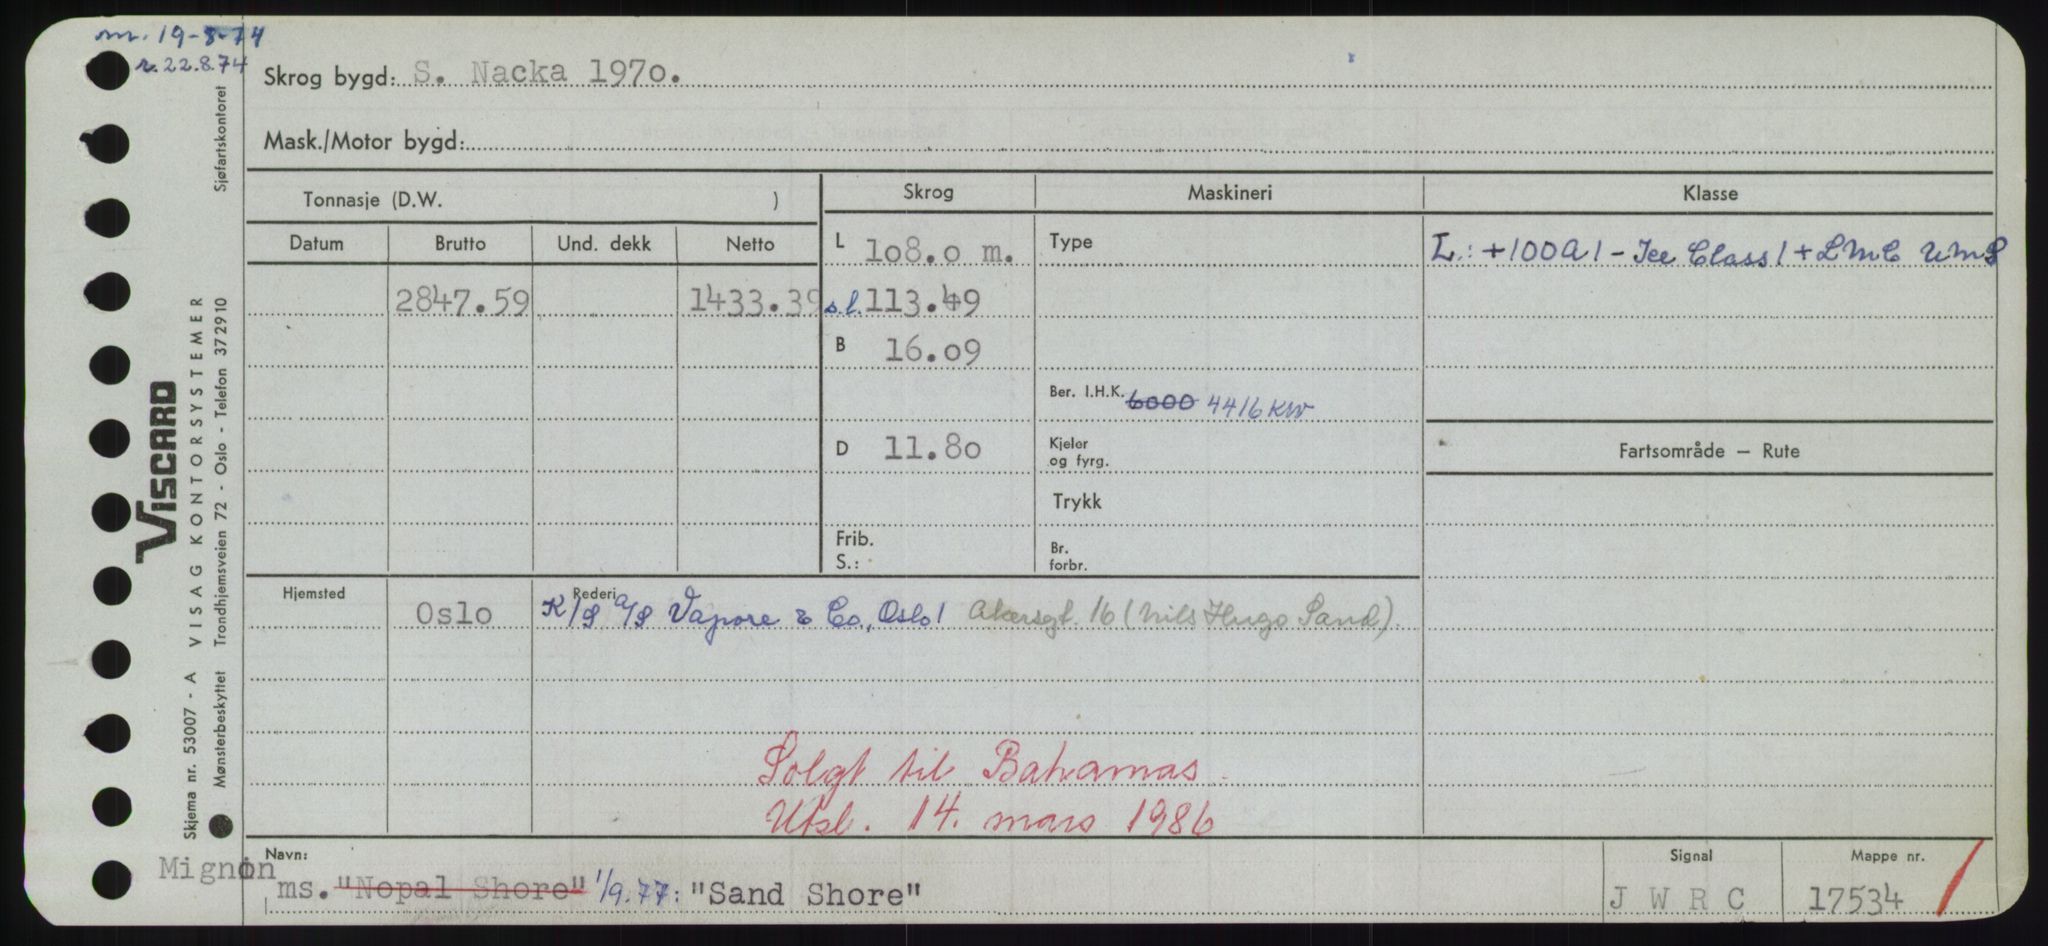 m. 19-8-74
r. 22.8.74
Skrog bygd: S. Nacka 1970.
Mask./Motor bygd:
Tonnasje (D.W. )
Skrog
Maskineri
Klasse
Datum Brutto Und. dekk Netto
L 108.0 m.
Type
L.: +100A1 - Ice Class 1 + LMC UMS
2847.59 1433.39
s.l. 113.49
B 16.09
Ber. I.H.K. 6000 4416 KW
D 11.80
Kjeler
og fyrg.
Fartsområde — Rute
Trykk
Frib.
S.:
Br.
forbr.
Hjemsted Oslo
Rederi K/S A/S Vapore & Co, Oslo 1 Akersgt. 16 (Nils Hugo Sand).
Solgt til Bahamas.
Utsl. 14. mars 1986
Navn:
Mignon
ms. "Nopal Shore" 1/9.77: "Sand Shore"
Signal
J W R C
Mappe nr.
17534
Skjema nr. 53007 - A VISAG KONTORSYSTEMER
VISCARD
Mønsterbeskyttet Trondhjemsveien 72 - Oslo - Telefon 372910 Sjøfartskontoret